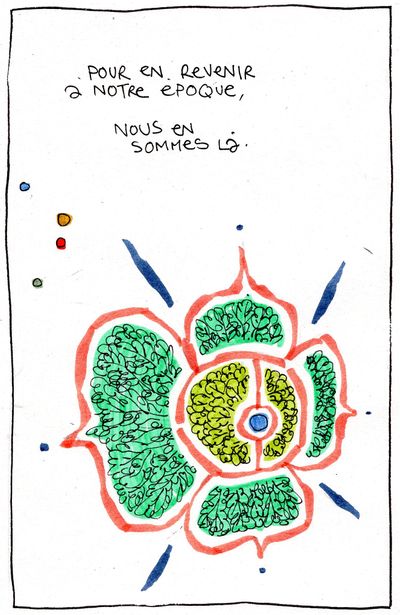 POUR EN REVENIR
à NOTRE EPOQUE,
NOUS EN
SOMMES Là.